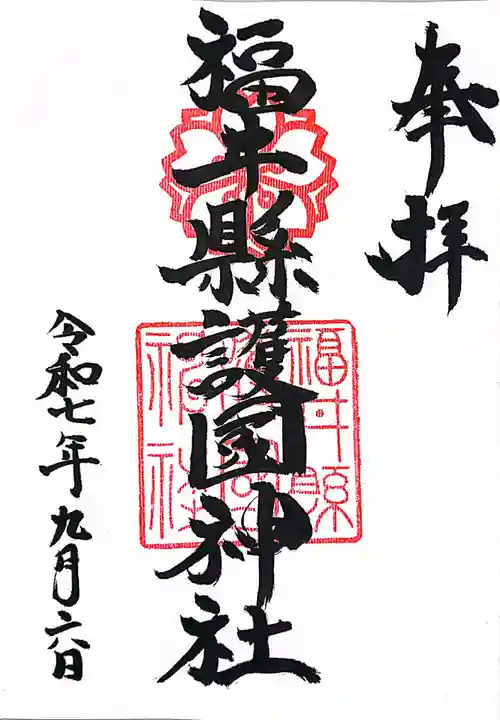 奉拝
福井縣護国神社
福井縣
護國
神社
令和七年九月六日